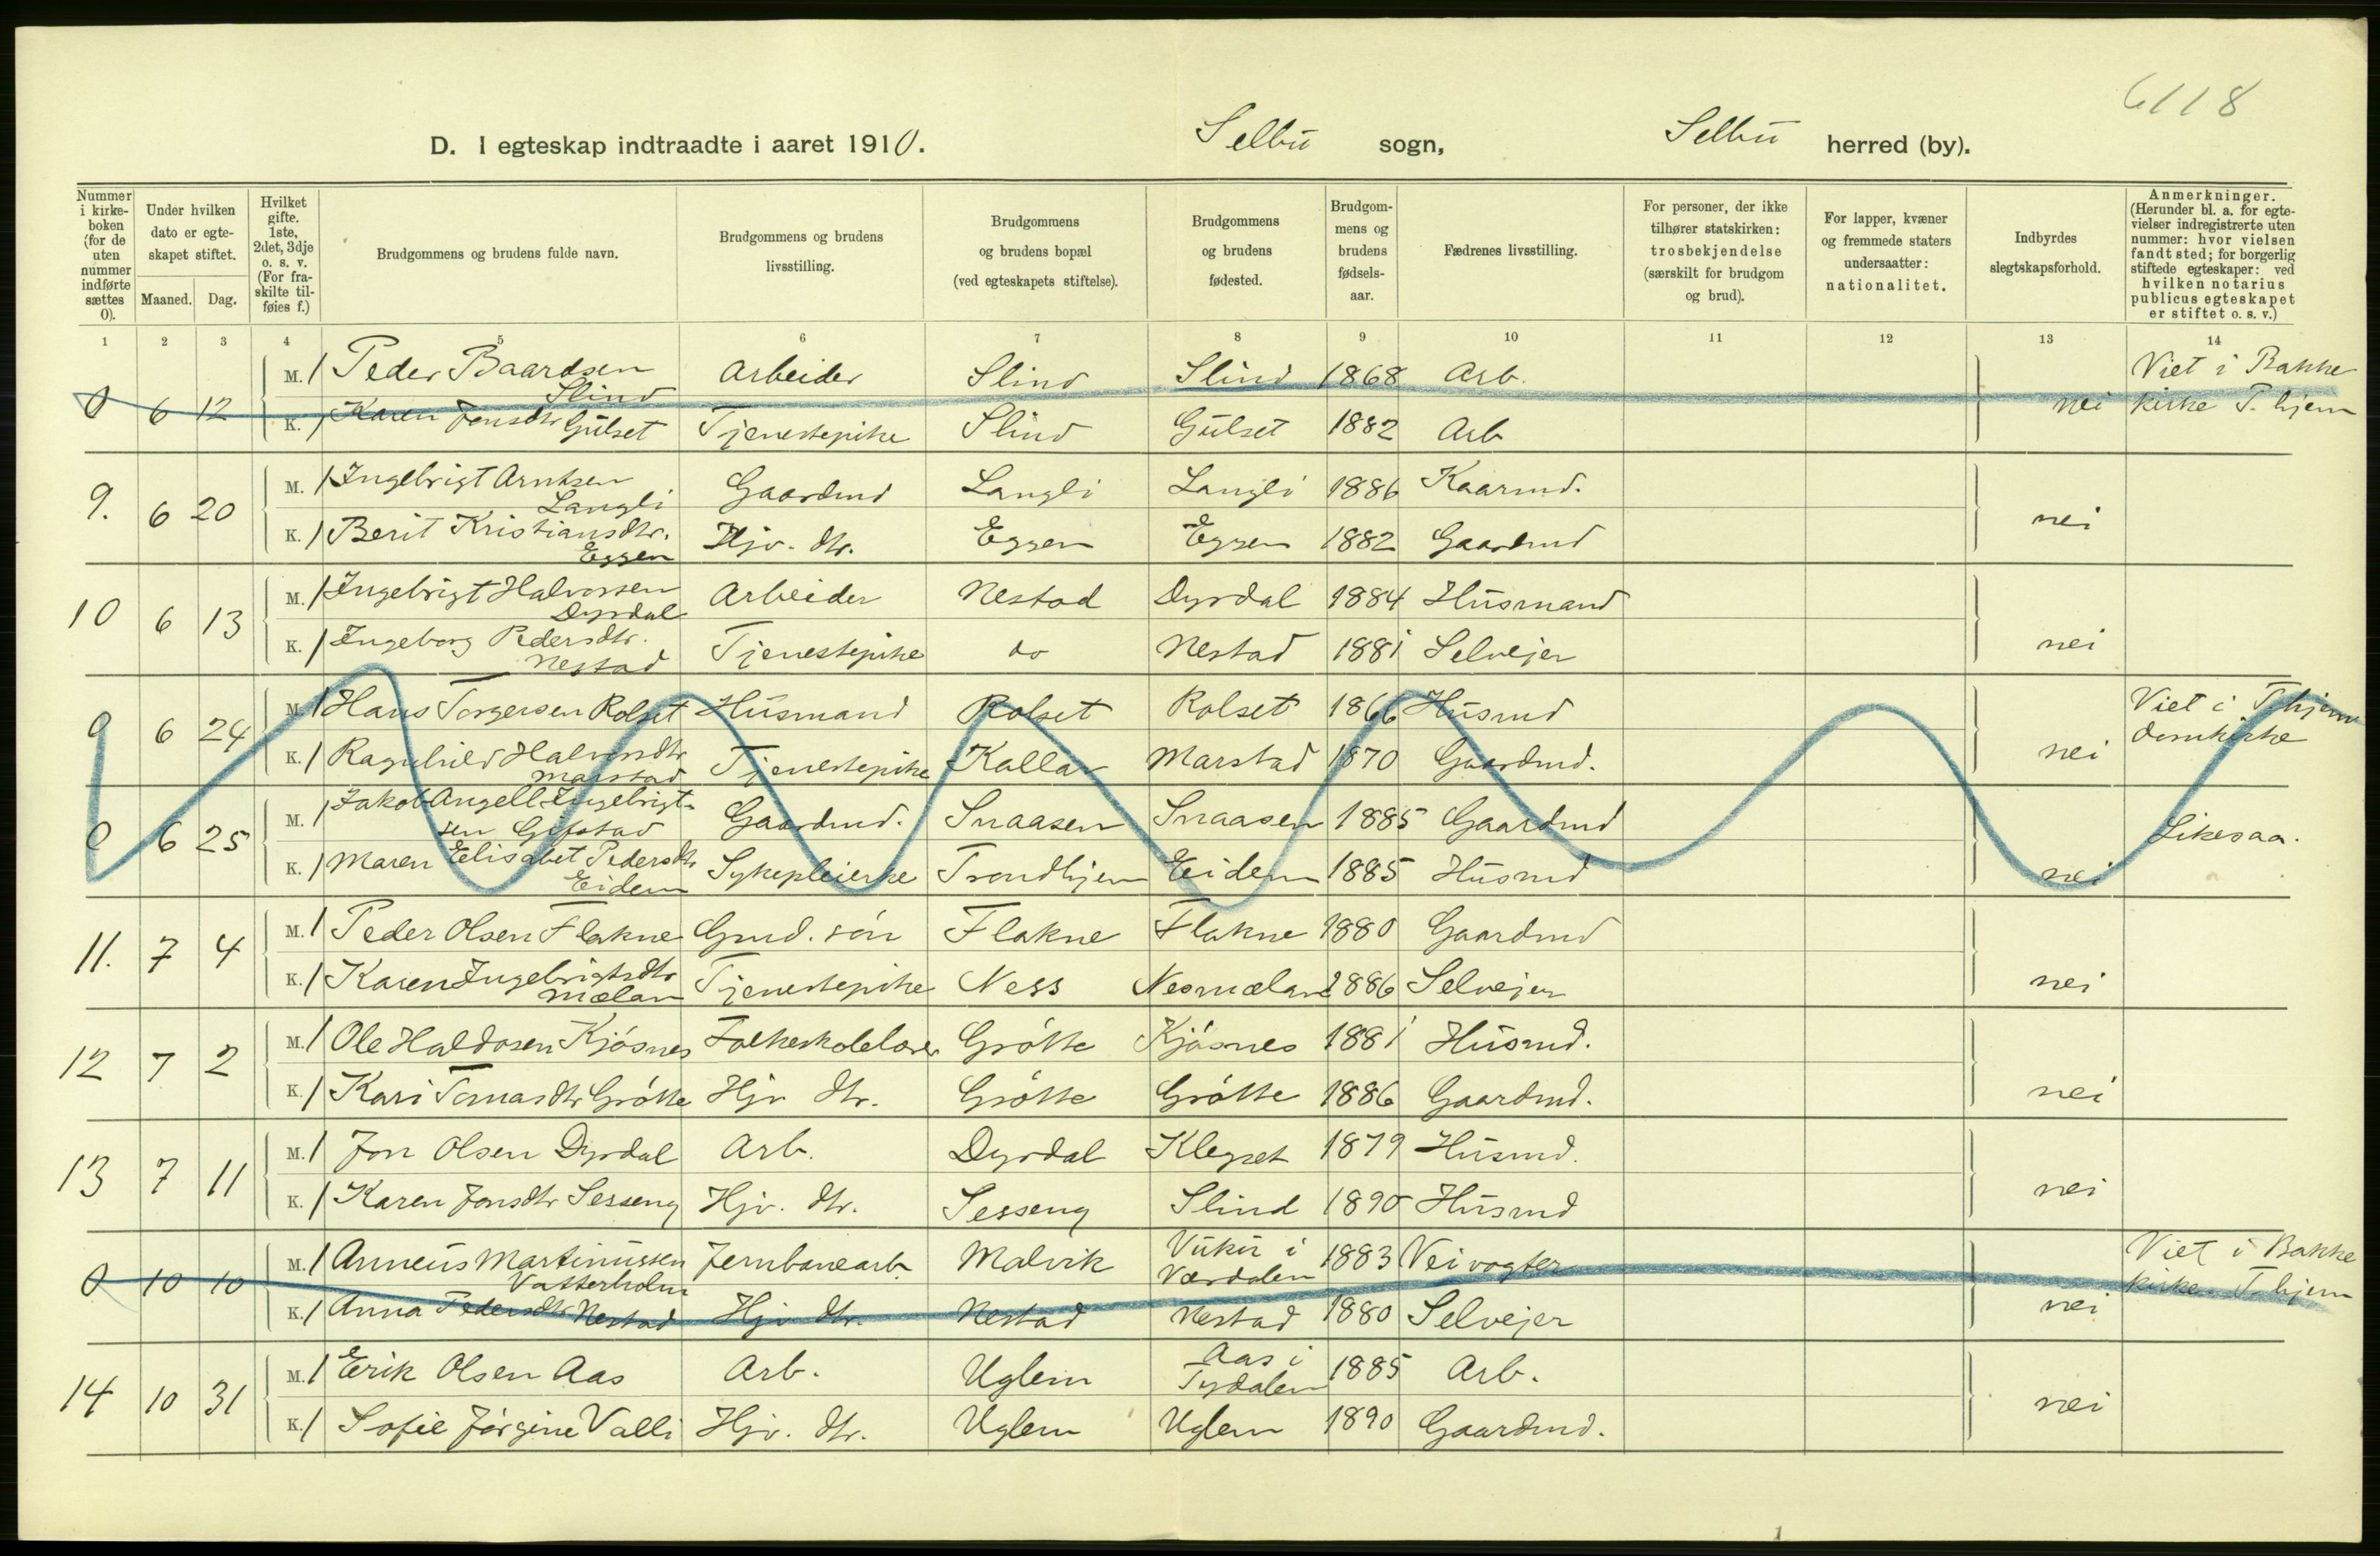 6118
D. I egteskap indtraadte i aaret 1910. Selbu sogn, Selbu herred (by).
Nummer i kirke-boken (for de uten nummer indførte sættes 0).
Under hvilken dato er egte-skapet stiftet.
Maaned. Dag.
Hvilket gifte. 1ste, 2det, 3dje o. s. v. (For fra-skilte til-føies f.)
Brudgommens og brudens fulde navn.
Brudgommens og brudens livsstilling.
Brudgommens og brudens bopæl (ved egteskapets stiftelse).
Brudgommens og brudens fødested.
Brudgom-mens og brudens fødsels-aar.
Fædrenes livsstilling.
For personer, der ikke tilhører statskirken: trosbekjendelse (særskilt for brudgom og brud).
For lapper, kvæner og fremmede staters undersaatter: nationalitet.
Indbyrdes slegtskapsforhold.
Anmerkninger. (Herunder bl. a. for egte-vielser indregistrerte uten nummer: hvor vielsen fandt sted; for borgerlig stiftede egteskaper: ved hvilken notarius publicus egteskapet er stiftet o. s. v.)
1 2 3 4 5 6 7 8 9 10 11 12 13 14
0 6 12 M. 1 Peder Baardsen Slind Arbeider Slind Slind 1868 Arb. nei Viet i Bakke kirke T.hjem
K. 1 Karen Jonsdtr Gulset Tjenestepike Slind Gulset 1882 Arb
9. 6 20 M. 1 Ingebrigt Arntsen Langli Gaardmd Langli Langli 1886 Kaarmd. nei
K. 1 Berit Kristiansdtr. Eggen Hjv. dtr. Eggen Eggen 1882 Gaardmd
10 6 13 M. 1 Ingebrigt Halvorsen Dyrdal Arbeider Nestad Dyrdal 1884 Husmand nei
K. 1 Ingeborg Pedersdtr. Nestad Tjenestepike do Nestad 1881 Selvejer
0 6 24 M. 1 Hans Torgersen Rolset Husmand Rolset Rolset 1866 Husmd nei Viet i T.hjem domkirke
K. 1 Ragnhild Halvorsdtr Marstad Tjenestepike Kallar Marstad 1870 Gaardmd.
0 6 25 M. 1 Jakob Angell Ingebrigt-sen Gifstad Gaardmd. Snaasen Snaasen 1885 Gaardmd nei Likesaa.
K. 1 Maren Elisabet Pedersdtr Eidem Sykepleierke Trondhjem Eidem 1885 Husmd
11. 7 4 M. 1 Peder Olsen Flakne Gmd. søn Flakne Flakne 1880 Gaardmd nei
K. 1 Karen Ingebrigtsdtr Mælan Tjenestepike Ness Nesmælan 1886 Selvejer
12 7 2 M. 1 Ole Haldosen Kjøsnes Folkeskolelærer Grøtte Kjøsnes 1881 Husmd. nei
K. 1 Kari Tomasdtr Grøtte Hjv dtr. Grøtte Grøtte 1886 Gaardmd.
13 7 11 M. 1 Jon Olsen Dyrdal Arb. Dyrdal Klegset 1879 Husmd. nei
K. 1 Karen Jonsdtr Sesseng Hjv. dtr. Sesseng Slind 1890 Husmd
0 10 10 M. 1 Arneus Martinussen Vatterholm Jernbanearb. Malvik Vuku i Værdalen 1883 Veivogter nei Viet i Bakke kirke T.hjem
K. 1 Anna Pedersdtr Nestad Hjv dtr. Nestad Nestad 1880 Selvejer
14 10 31 M. 1 Erik Olsen Aas Arb. Uglem Aas i Tydalen 1885 Arb. nei
K. 1 Sofie Jørgine Valli Hjv. dtr. Uglem Uglem 1890 Gaardmd.
1